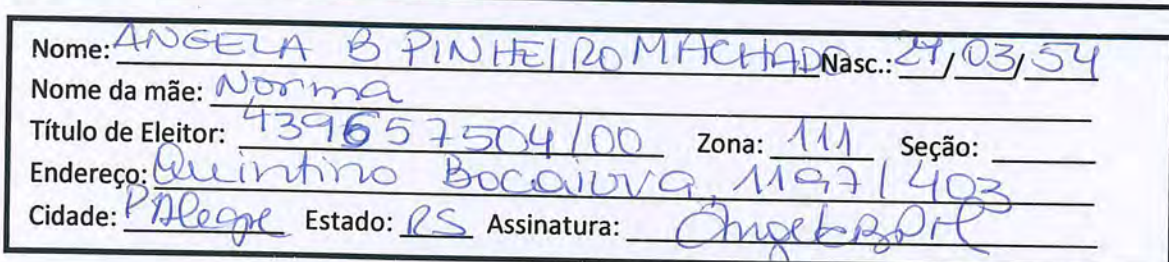 Nome: ANGELA B PINHEIRO MACHADO Nasc.: 27/03/54
Nome da mãe: Norma
Título de Eleitor: 439657504/00 Zona: 111 Seção:
Endereço: Quintino Bocaiuva, 1197/403
Cidade: PAlegre Estado: RS Assinatura: